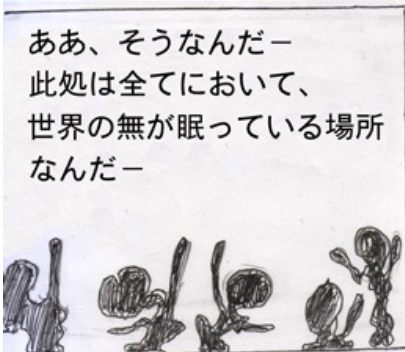 ああ、そうなんだ－
此処は全てにおいて、
世界の無が眠っている場所
なんだ－